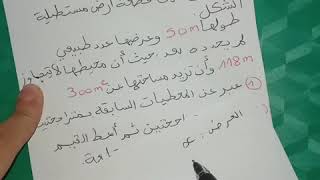 قطعة أرض مستطيلة
الشكل
طولها 50m وعرضها عدد طبيعي
لم يحدده بعد حيث أن محيطها لا يتجاوز
118m وأن تزيد مساحتها عن 300m²
① عبر عن المعطيات السابقة بمتراجحتين
احتين ثم أعط القيم
العرض: